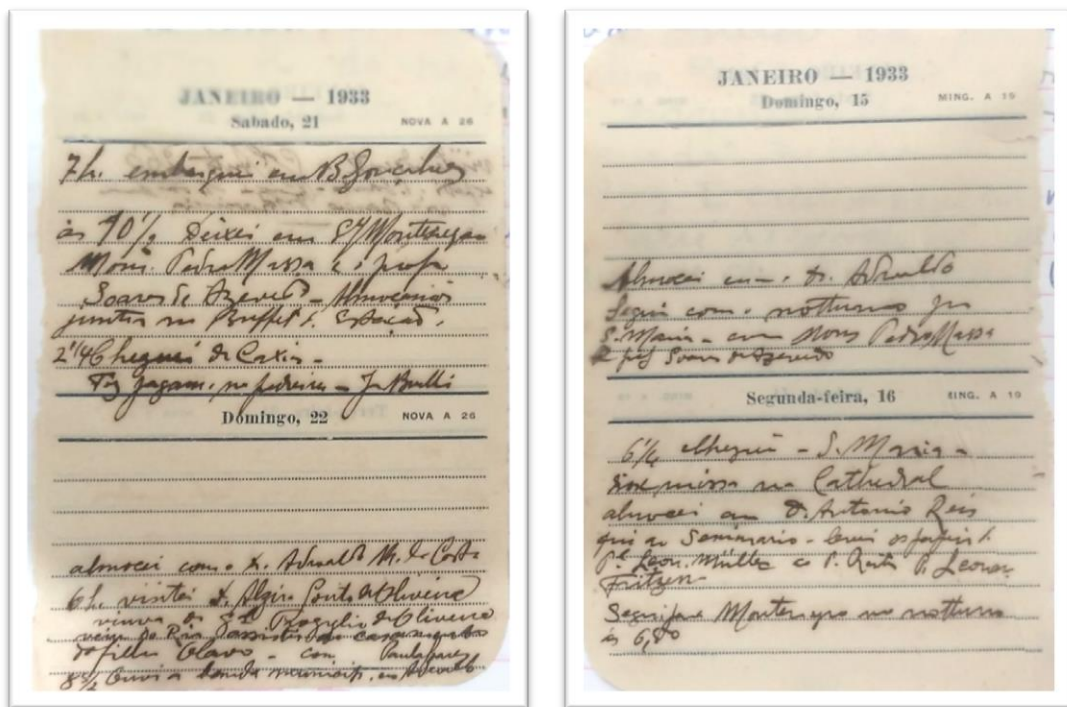 JANEIRO — 1933
Sabado, 21 NOVA A 26
7h. embarquei em B. Gonçalves
às 10½ Deixei em S/ Montenegro
Mons. Pedro Massa e o prof.
Soares de Azevedo - Almoçamos
juntos no Buffet d. Estação.
2¼ Cheguei de Caxias -
Fiz pagam. na pedreira -
Domingo, 22 NOVA A 26
almocei com o Dr. Adroaldo M. da Costa
6 h. visitei d. Algira Souto de Oliveira
viuva do de Oliveira
veiu do Rio assistir ao casamento
do filho Olavo - com Paula
8½ Ouvi a banda municip. em
JANEIRO — 1933
Domingo, 15 MING. A 19
Almocei com o Dr. Adroaldo
Segui com o notturno p.
S. Maria - com Mons Pedro Massa
e prof Soares de Azevedo
Segunda-feira, 16 MING. A 19
6¼ cheguei - S. Maria -
disse missa na Cathedral
almocei com D. Antonio Reis
fui ao Seminario -
P.e Leon. Müller e o P. Leonar
Fritzen
Segui para Montenegro no notturno
às 6,40